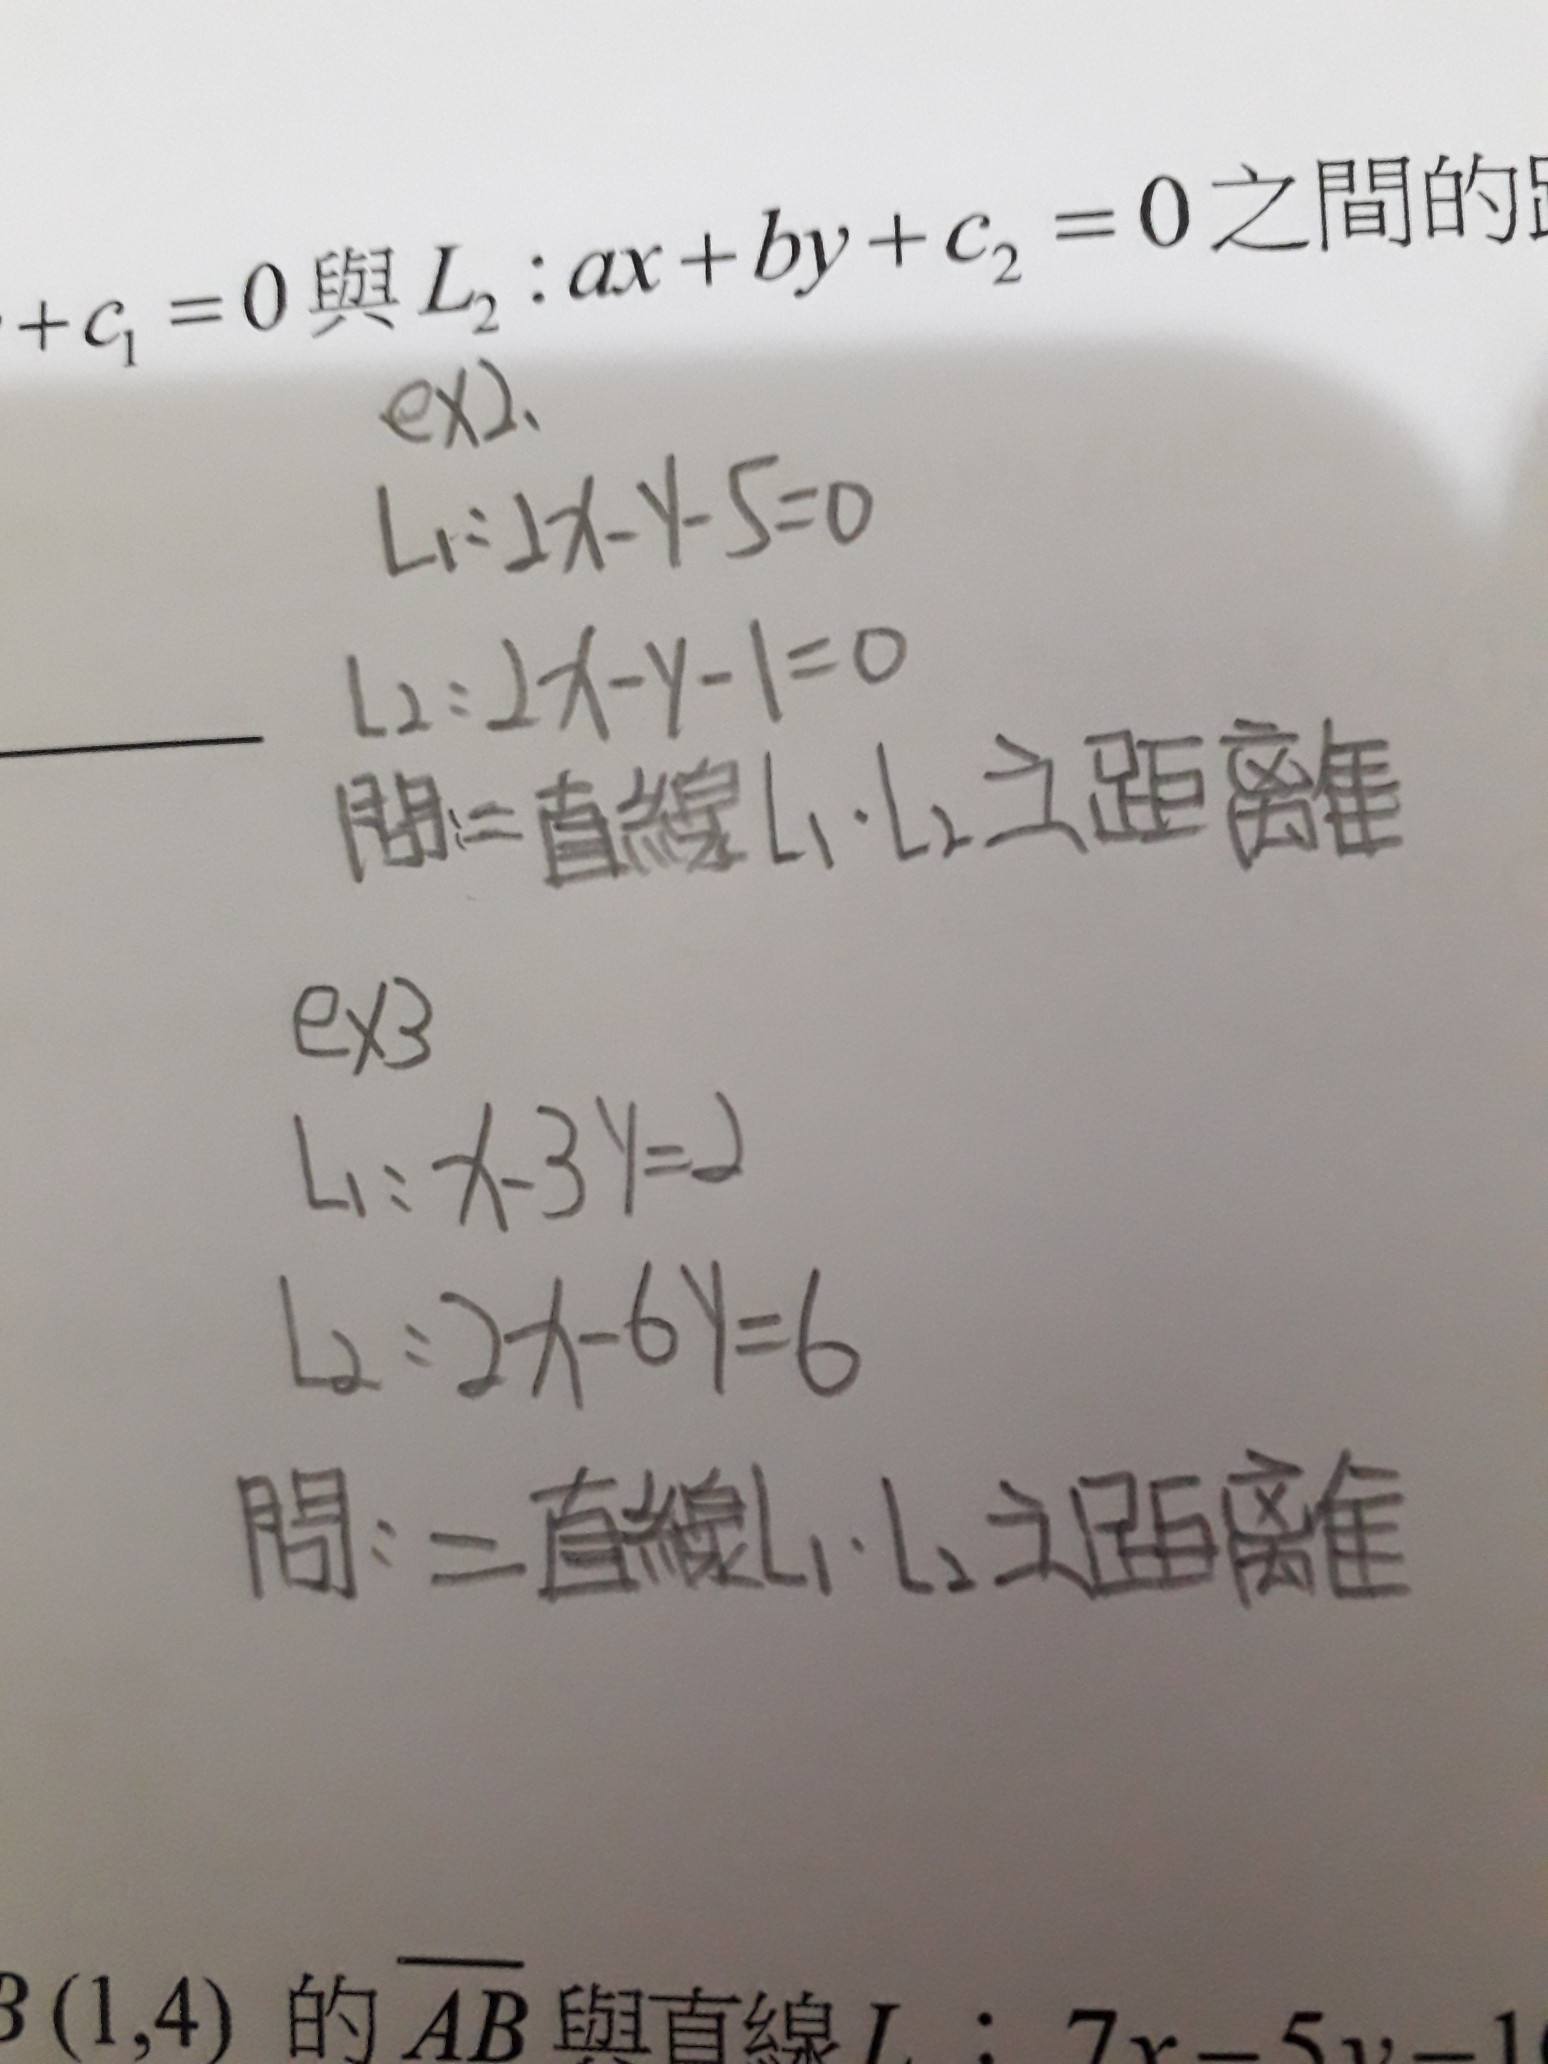 +c₁=0與L₂:ax+by+c₂=0之間的
ex2、
L₁:2x-y-5=0
L₂:2x-y-1=0
問:二直線L₁·L₂之距離
ex3
L₁:x-3y=2
L₂:2x-6y=6
問:二直線L₁·L₂之距離
B(1,4) 的 AB 與直線L:7x-5y-1